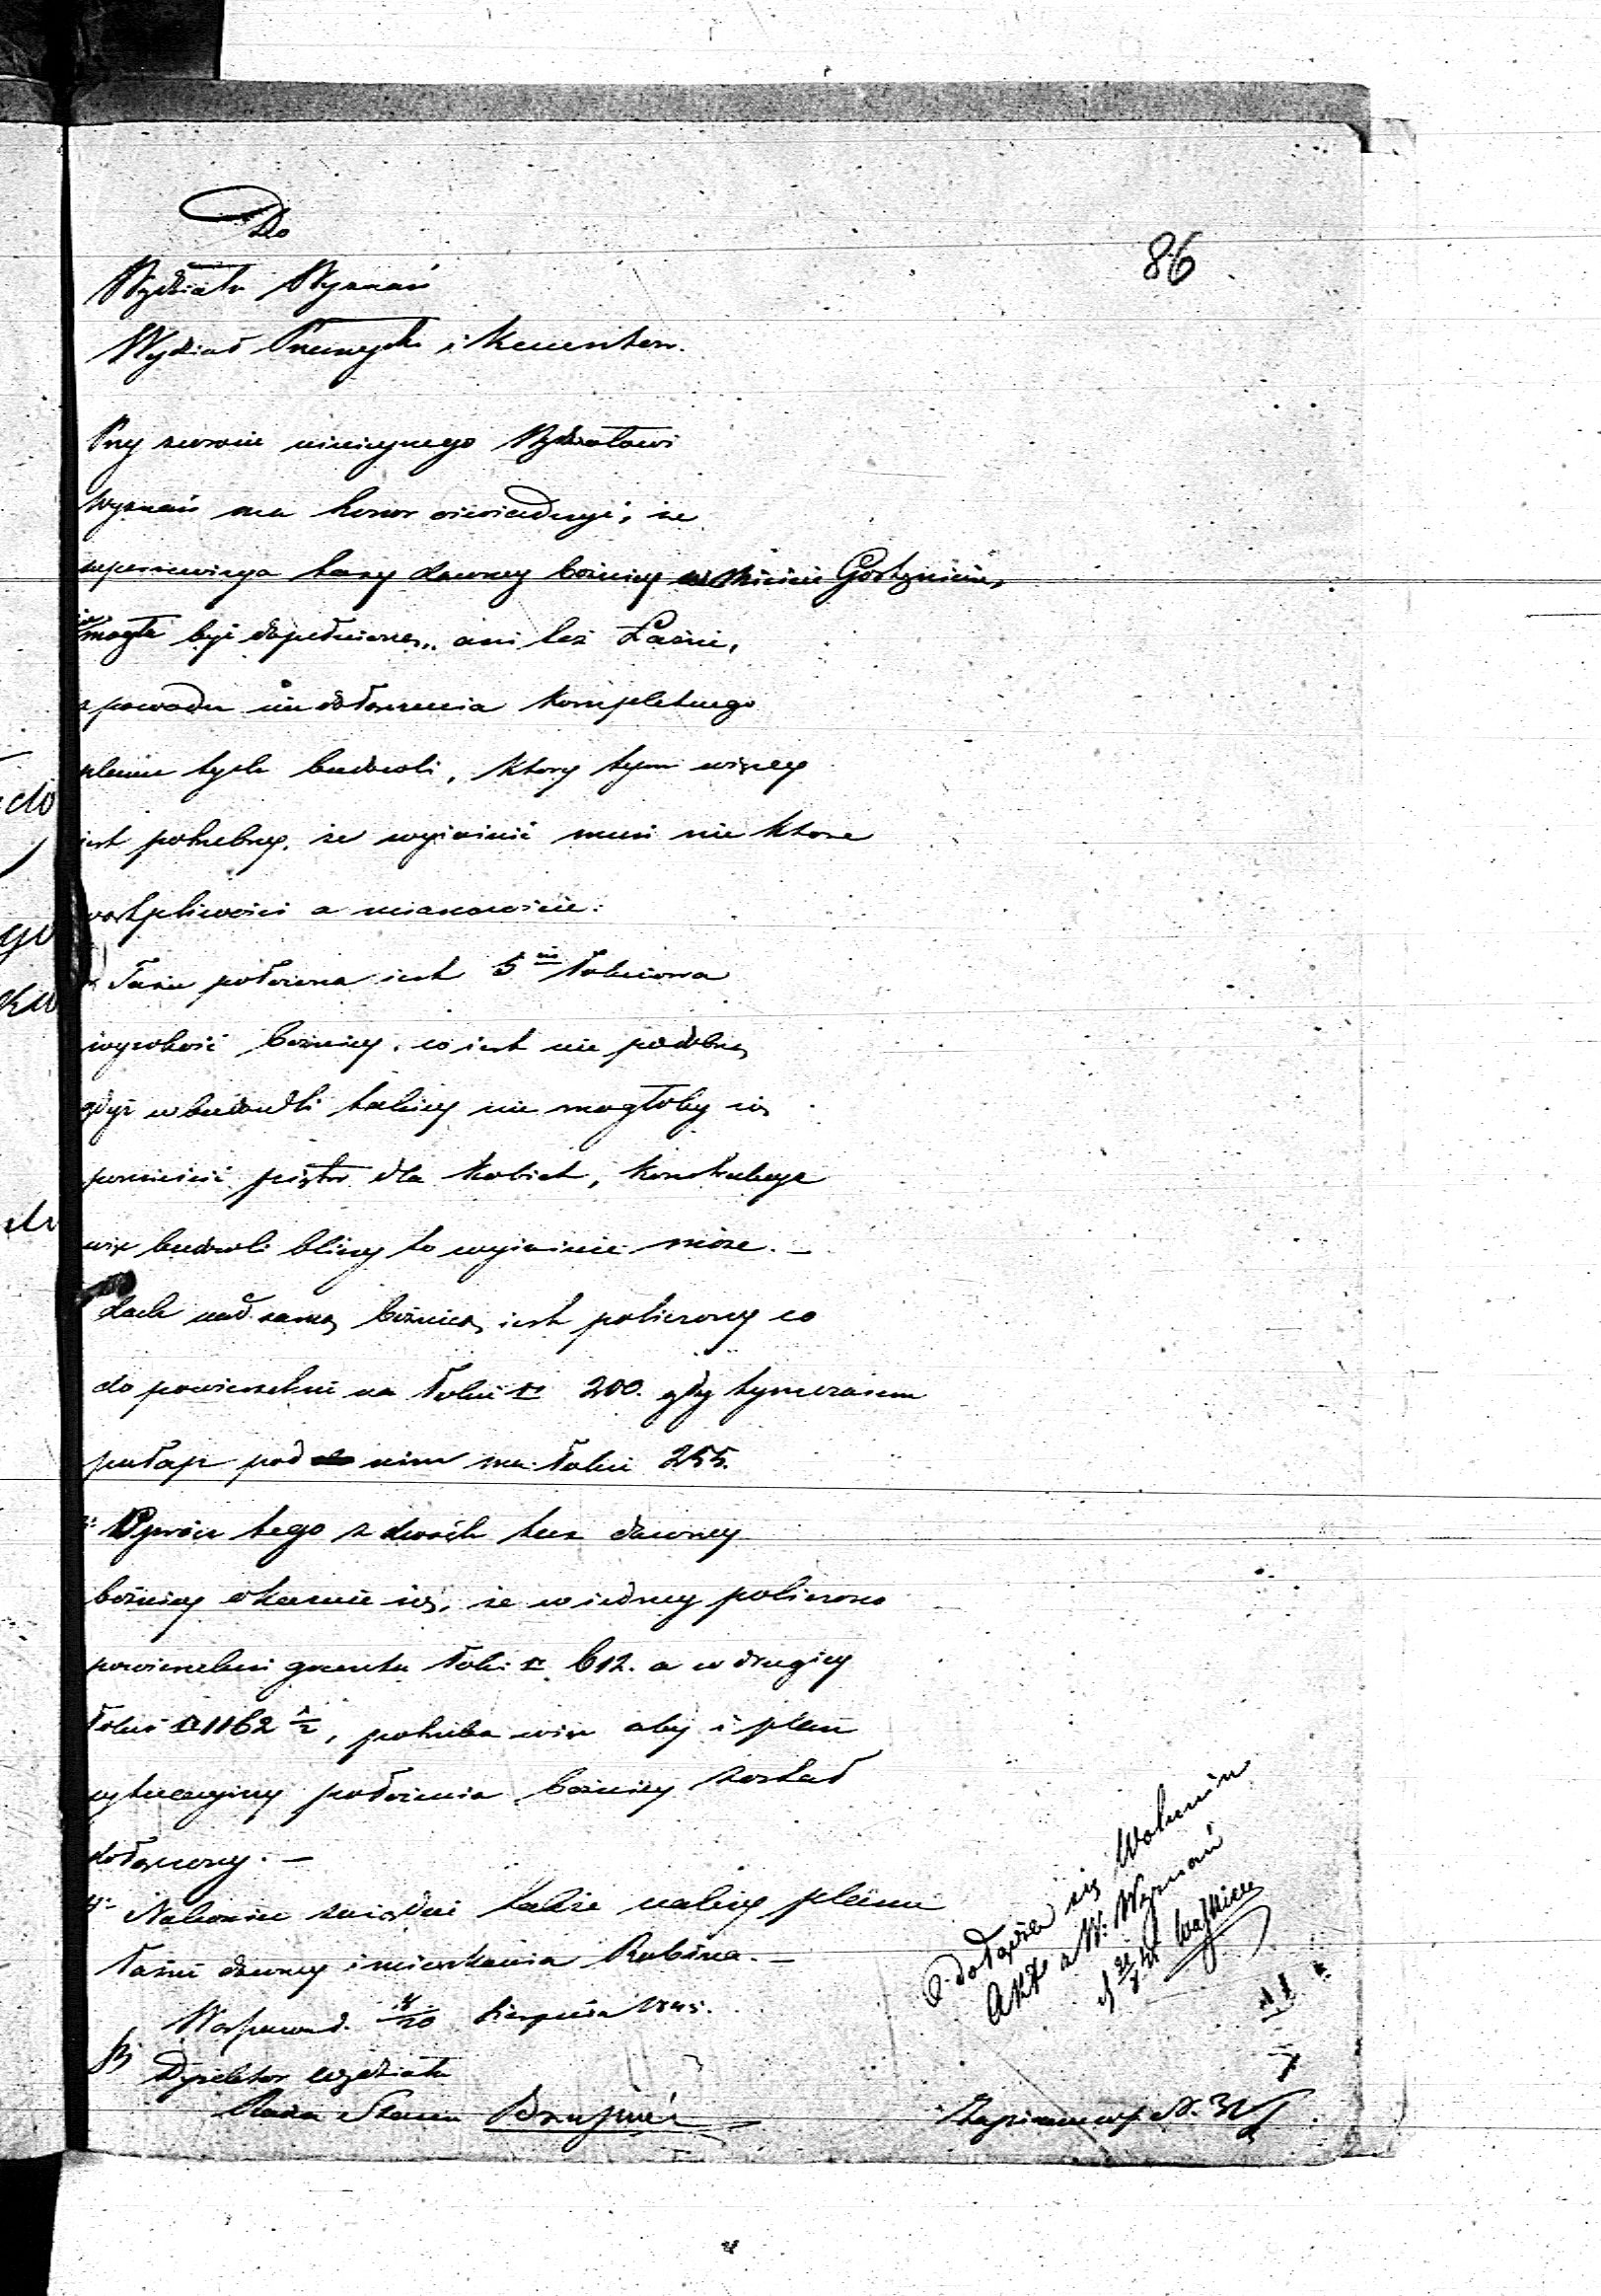 86
Do
Wydziału Wyznań
Wydział Przemysłu i Kunsztów.
Przy zwrocie ninieyszego Wydziałowi
Wyznań ma honor oświadczyć, że
superrewizya taxy dawney bożnicy w Mieście Gostyninie,
nie mogła być dopełnioną, ani też Łaźni,
z powodu nie dołączenia kompletnego
planu tych budowli, który tym więcey
iest potrzebny, że wyiaśnić musi nie które
wątpliwości a mianowicie:
Taxa położona iest 5 łokciowa
wysokość bożnicy, co iest nie podobne
gdyż w budowli takiey nie mogłoby się
pomieścić piętro dla kobiet, konstrukcya
więc budowli bliżey to wyiaśnić może. —
dach nad samą bożnicą iest policzony co
do powierzchni na łokci □ 200. gdy tymczasem
pułap pod nim ma łokci 255.
Oprócz tego z dwóch tax dawney
bożnicy okazuie się, że w iedney policzono
powierzchni gruntu łokci □ 612. a w drugiey
łokci □ 1162 ½, potrzeba więc aby i plan
sytuacyiny położenia bożnicy został
dołączony. —
4. Nakoniec także należy planu
łaźni dawney i mieszkania Rabina. —
Warszawa d. /20 Sierpnia 1845.
Dyrektor Wydziału
Radca Stanu
dołącza się Wolumin
Akt z W. Wyznań